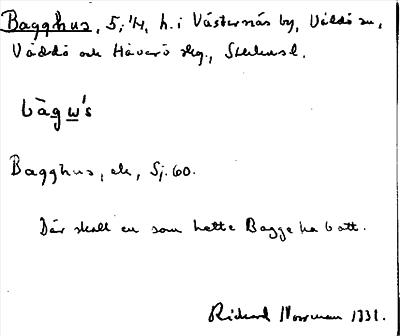 Bagghus, 5, 1/4, h. i Västernäs by, Väddö sn,
Väddö och Häverö skg., Sthlms l.
bàgw's
Bagghus, ek, Sj. 60.
Där skall en som hette Bagge ha bott.
Rickard Norrman 1931.